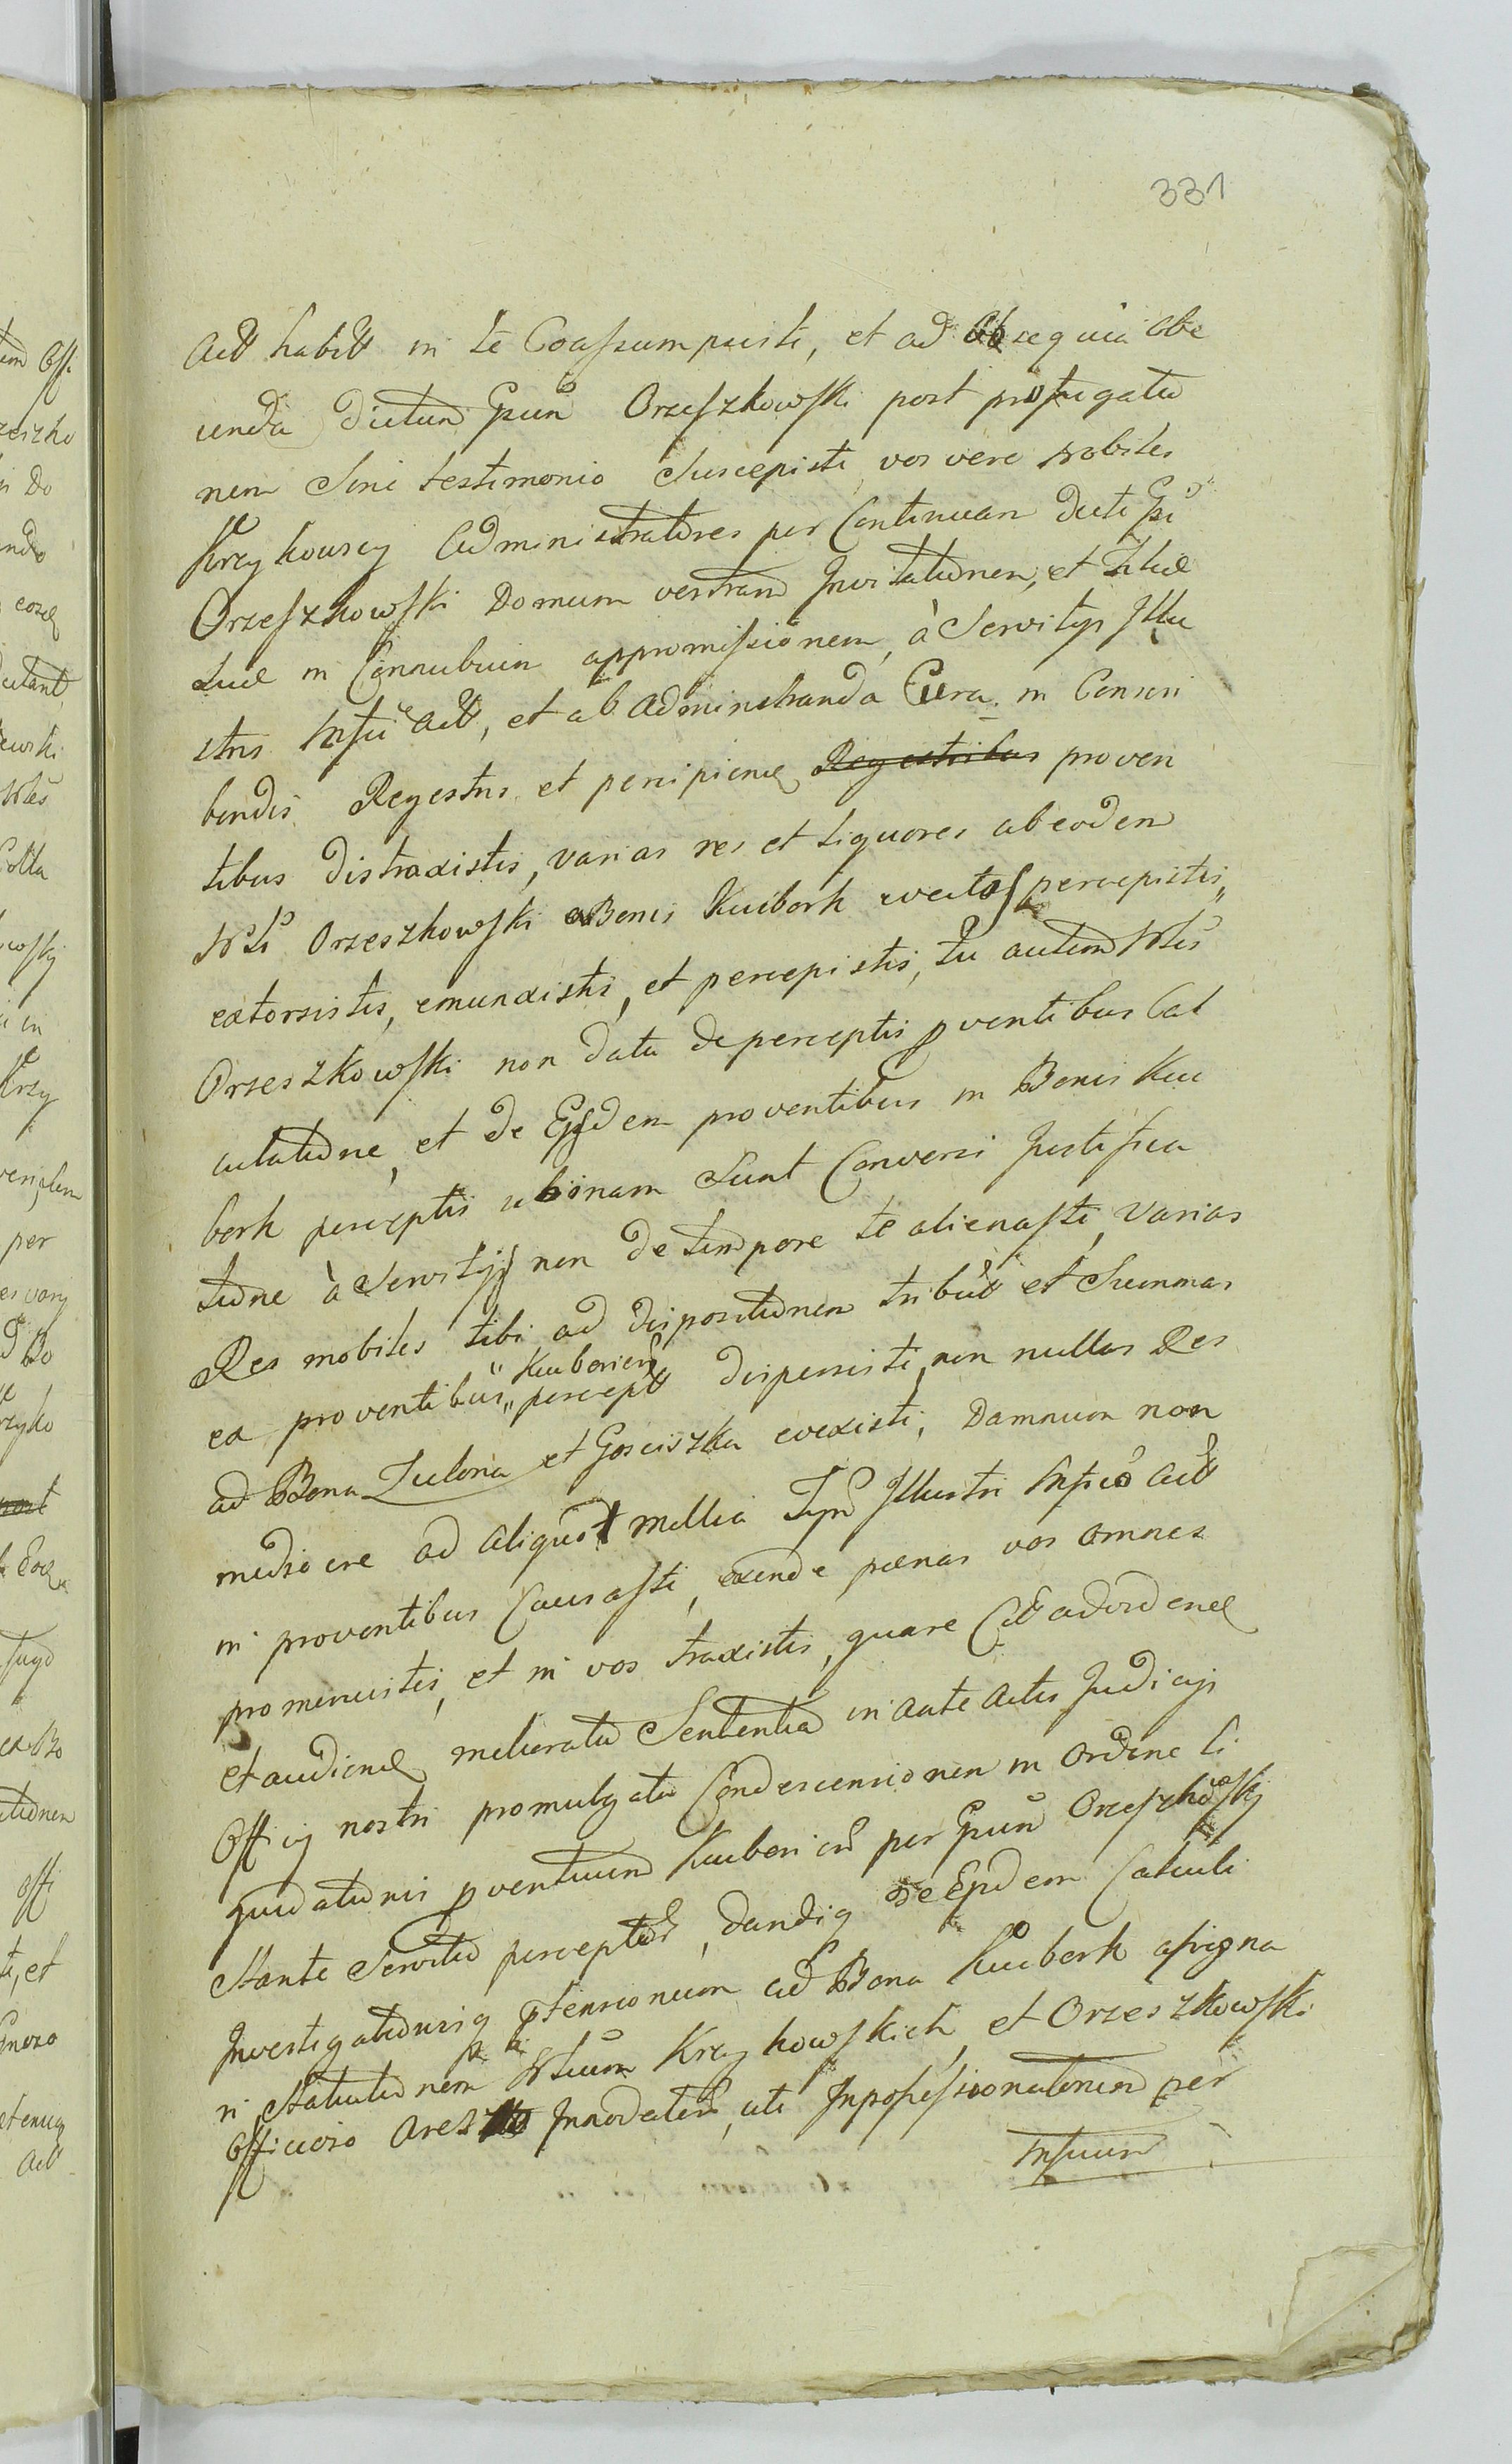 331
Act habit in te Coassumpsisti, et ad Obsequia obe
unda dictum Gsum Orzeszkowski post profugatio
nem Sine testimonio Suscepisti, vos vero Nobiles
Krzykowscy Administratores per Continuam dicti Gsi
Orzeszkowski Domum vestram Invitationem, et Filiae
Suae in Connubium appromissionem, à Servitys Illu
stris Mfci Act, et ab Administranda Cura in Conscri
bendis Regestris et percipiend Regestribus proven
tibus distraxistis, varias res et Liquores ab eodem
Nbli Orzeszkowski e Bonis Kuibork evectas percepistis,
extorsistis, emunxistis, et percepistis, tu autem Nblis
Orzeszkowski non data de perceptis pventibus Cal
culatione, et de Eijsdem proventibus in Bonis Kui
bork perceptis ubinam Sunt Conversi Justifica
tione à Servityjs non de tempore te alienasti, varias
Res mobiles tibi ad dispositionem tribut et Summas
ex proventibus Kuiboriens percept dispersisti, non nullas Res
ad Bona Zulona et Gosciszka evexisti, Damnum non
mediocre ad aliquot millia Tynf Illustri Mfico Act
in proventibus Causasti, exinde paenas vos omnes
promeruistis, et in vos traxistis, quare Cit ad vidend
et audiend melioratio Sententia in ante actis Judicijs
Officy nostri promulgatio Condescensionem in Ordine Li
quidationis pventuum Kuiboriens per Gsum Orzeszkowski
Stante Servitio perceptor, dandiq de Eijsdem Calculi
Investigationisq ptensionum ad Bona Kuibork assigna
ri Statutionem Nblium Krzykowskich, et Orzeszkowski
Officioso Areszto Innodator, uti Inpossessionatorum per
Mfcum